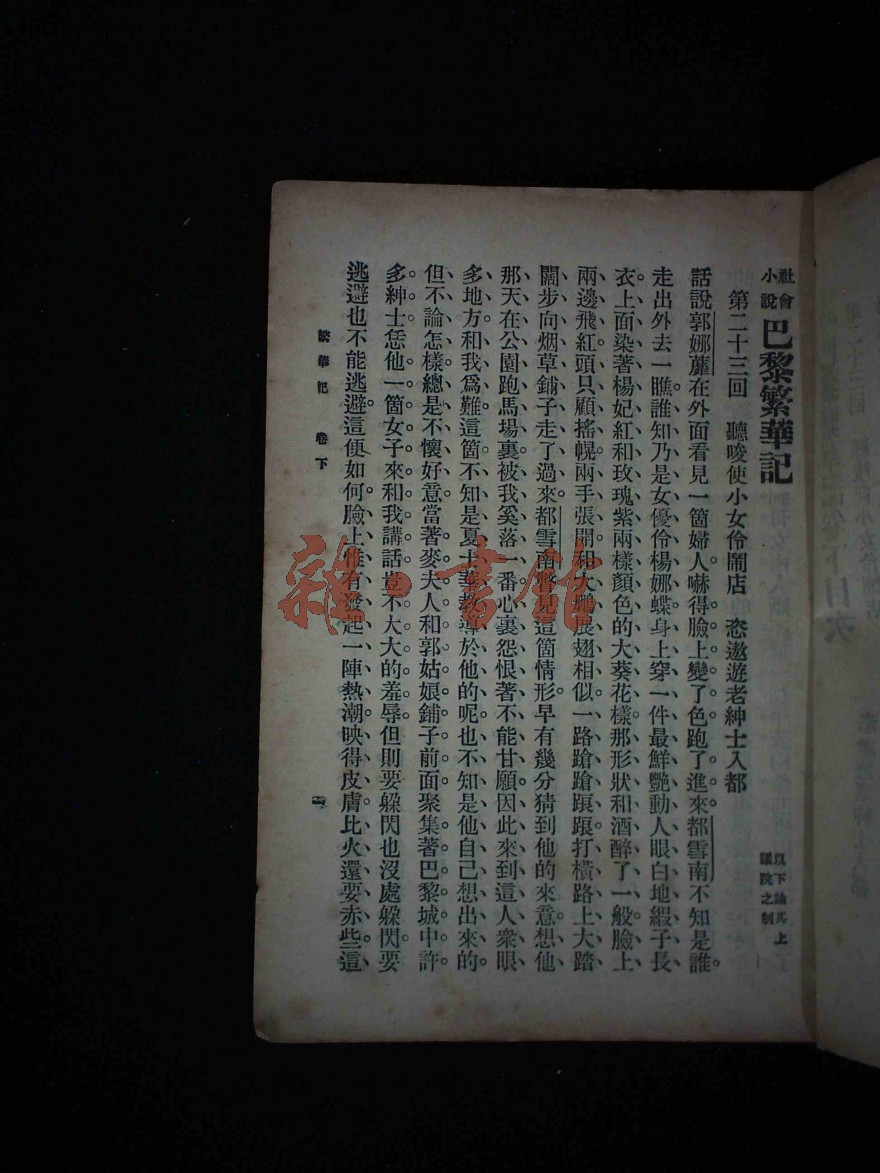 社會小說 巴黎繁華記
第二十三回　聽唆使小女伶鬧店　恣遨遊老紳士入都
以下論其上議院之制
話說郭娜蘼在外面看見一箇婦人嚇得臉上變了色跑了進來都雪南不知是誰
走出外去一瞧誰知乃是女優伶楊娜蝶身上穿一件最鮮艷動人眼白地緞子長
衣上面染著楊妃紅和玫瑰紫兩樣顏色的大葵花樣那形狀和酒醉了一般臉上
兩邊飛紅頭只顧搖幌兩手張開和大鵬展翅相似一路蹌蹌踉踉打橫路上大踏
闊步向烟草鋪子走了過來都雪南瞥見這箇情形早有幾分猜到他的來意想他
那天在公園跑馬場裏被我奚落一番心裏怨恨著不能甘願因此來到這人衆眼
多地方和我爲難這箇不知是夏士華教導於他的呢也不知是他自己想出來的
但不論怎樣總是不懷好意當著麥夫人和郭姑娘鋪子前面聚集著巴黎城中許
多紳士恁他一箇女子來和我講話豈不大大的羞辱但則要躲閃也沒處躲閃要
逃避也不能逃避這便如何臉上惟有潑起一陣熱潮映得皮膚比火還要赤些這
繁華記　卷下
一
雜·書館